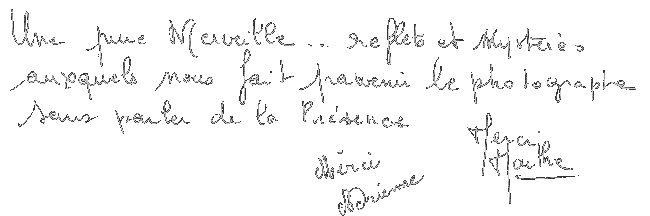 Une pure Merveille... reflets et Mystères
auxquels nous fait parvenir le photographe
sans parler de la Présence
Merci
Maître
Mérci
Adrienne